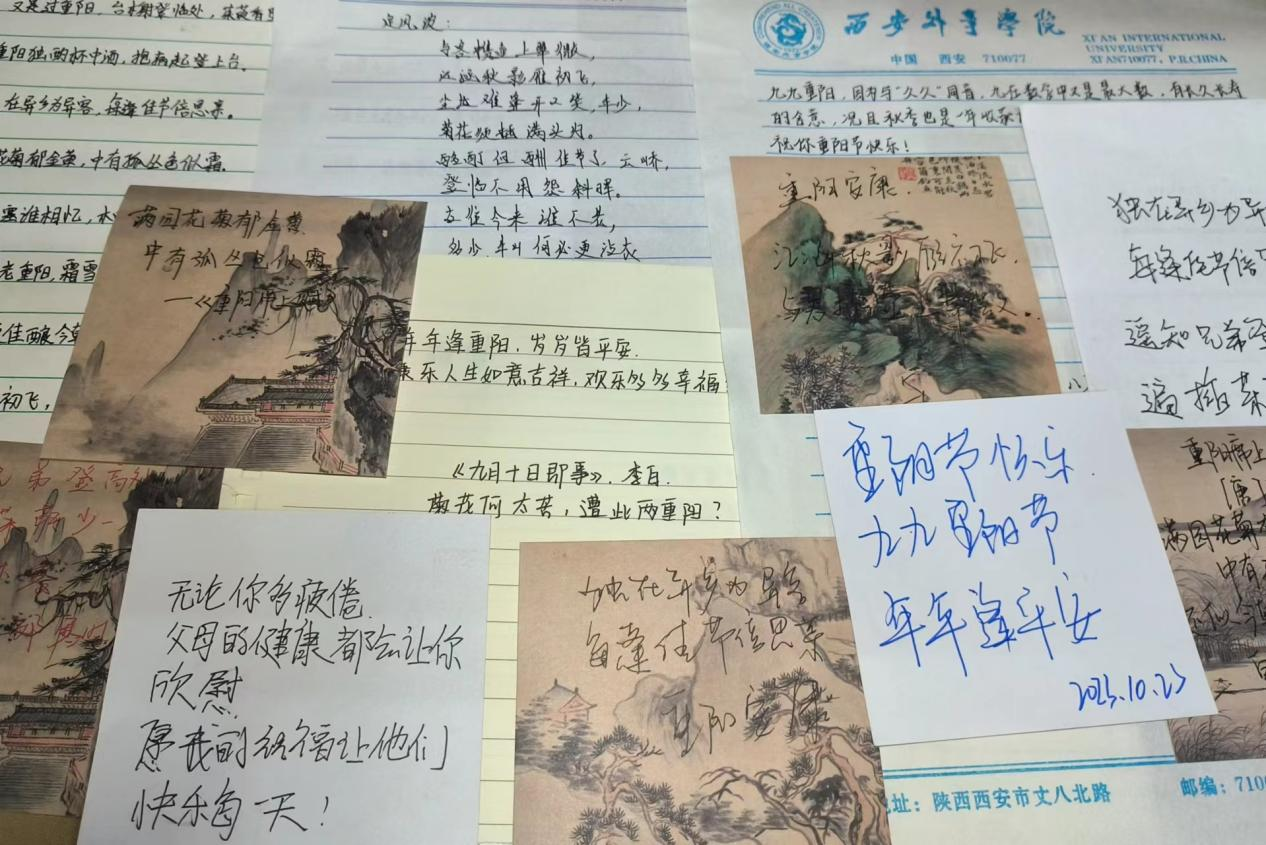 又是过重阳，台榭登临处，茱萸香
重阳独酌杯中酒，抱病起登上台。
在异乡为异客，每逢佳节倍思亲。
菊郁金黄，中有孤丛色似霜。
老重阳，霜雪
佳酿今
初飞，
定风波：
与客携壶上翠微，
江涵秋影雁初飞，
尘世难逢开口笑，年少，
菊花须插满头归。
酩酊但酬佳节了，云峤，
登临不用怨斜晖。
古往今来谁不老，
多少，牛山何必更沾衣
西安外事学院
XI'AN INTERNATIONAL
UNIVERSITY
XI'AN710077, P.R.CHINA
中国 西安 710077
九九重阳，因为与“久久”同音，九在数字中又是最大数，有长久长寿
的含意，况且秋季也是一年收获
祝你重阳节快乐！
满园花菊郁金黄
中有孤丛色似霜
—《重阳席上赋
重阳安康.
江涵秋影雁初飞.
与客携壶上翠微.
独在异乡为异
每逢佳节倍
遥知兄弟登
遍插茱
年年逢重阳.岁岁皆平安.
康乐人生如意吉祥，欢乐多多幸福
《九月十日即事》.李白.
菊花何太苦，遭此两重阳？
重阳节快乐.
九九重阳节
年年逢平安
2023.10.23
重阳席上
[唐]
满园花菊
中有
兄弟登高处
少一
无论你多疲倦
父母的健康都会让你
欣慰
愿我的祝福让他们
快乐每一天！
独在异乡为异客
每逢佳节倍思亲
重阳安康
址：陕西西安市丈八北路
邮编：7100